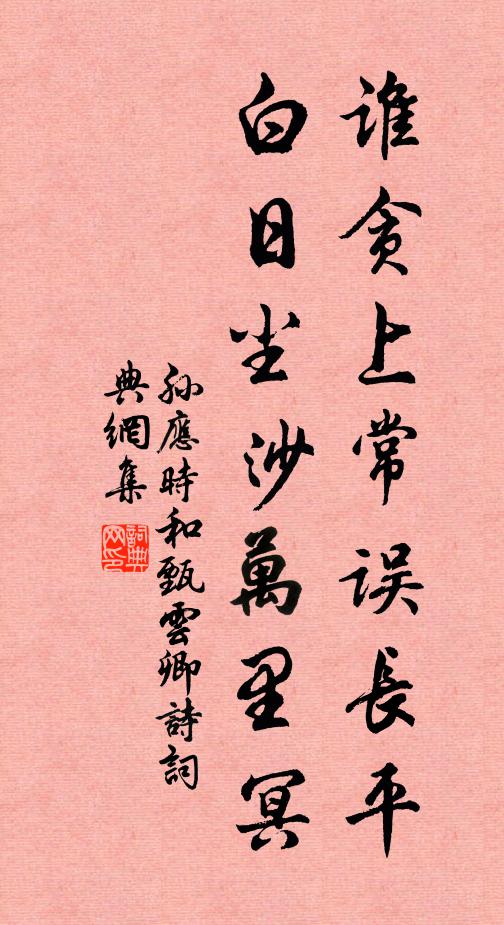 誰貪上常誤長平
白日尘沙萬里冥
孫應時和甄雲卿詩詞
典網集
詞典
网印